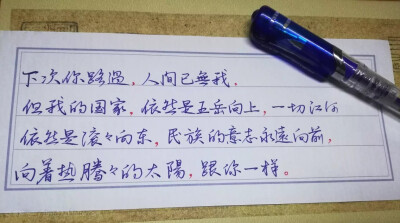 下次你路過，人间已無我，
但我的国家，依然是五岳向上，一切江河
依然是滚々向东，民族的意志永遠向前，
向着热腾々的太陽，跟你一样。